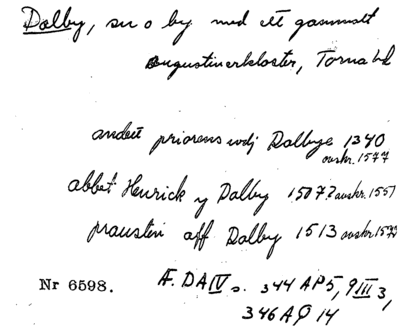 Dalby, sn o by med ett gammalt
augustinerkloster, Torna hd
andett priorens wdj Dalbye 1340
avskr. 1577
abbet Henrick y Dalby 1507? avskr. 1551
prausten aff Dalby 1513 avskr. 1577
Nr 6598.
Æ. DA IV s. 344 AP5, 9 III 3,
346 AQ 14